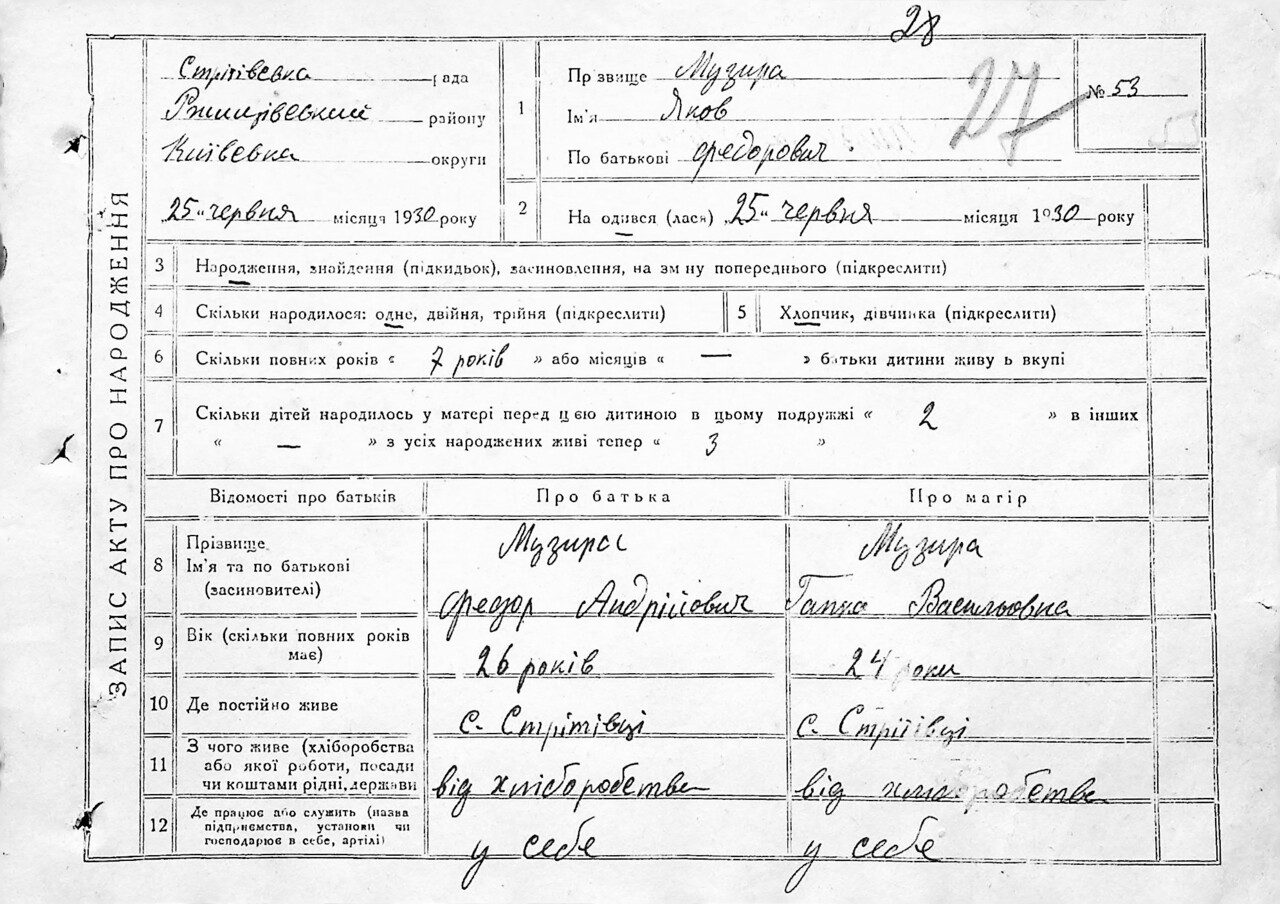 28
27
ЗАПИС АКТУ ПРО НАРОДЖЕННЯ
Стрітівська рада
Ржищівський району
Київська округи
25 червня місяця 1930 року
1 Прізвище Музира
Ім'я Яков
По батькові Федорович
№ 53
2 Народився (лася) 25 червня місяця 1930 року
3 Народження, знайдення (підкидьок), засиновлення, на зміну попереднього (підкреслити)
4 Скільки народилося: одне, двійня, трійня (підкреслити) 5 Хлопчик, дівчинка (підкреслити)
6 Скільки повних років « 7 років » або місяців « — » батьки дитини живуть вкупі
7 Скільки дітей народилось у матері перед цією дитиною в цьому подружжі « 2 » в інших
« — » з усіх народжених живі тепер « 3 »
Відомості про батьків Про батька Про матір
8 Прізвище, Ім'я та по батькові (засиновителі) Музира Федор Андрійович Музира Гапка Васильовна
9 Вік (скільки повних років має) 26 років 24 роки
10 Де постійно живе с. Стрітівці с. Стрітівці
11 З чого живе (хліборобства або якої роботи, посади чи коштами рідні, держави від хліборобства від хліборобства
12 Де працює або служить (назва підприємства, установи чи господарює в себе, артілі) у себе у себе